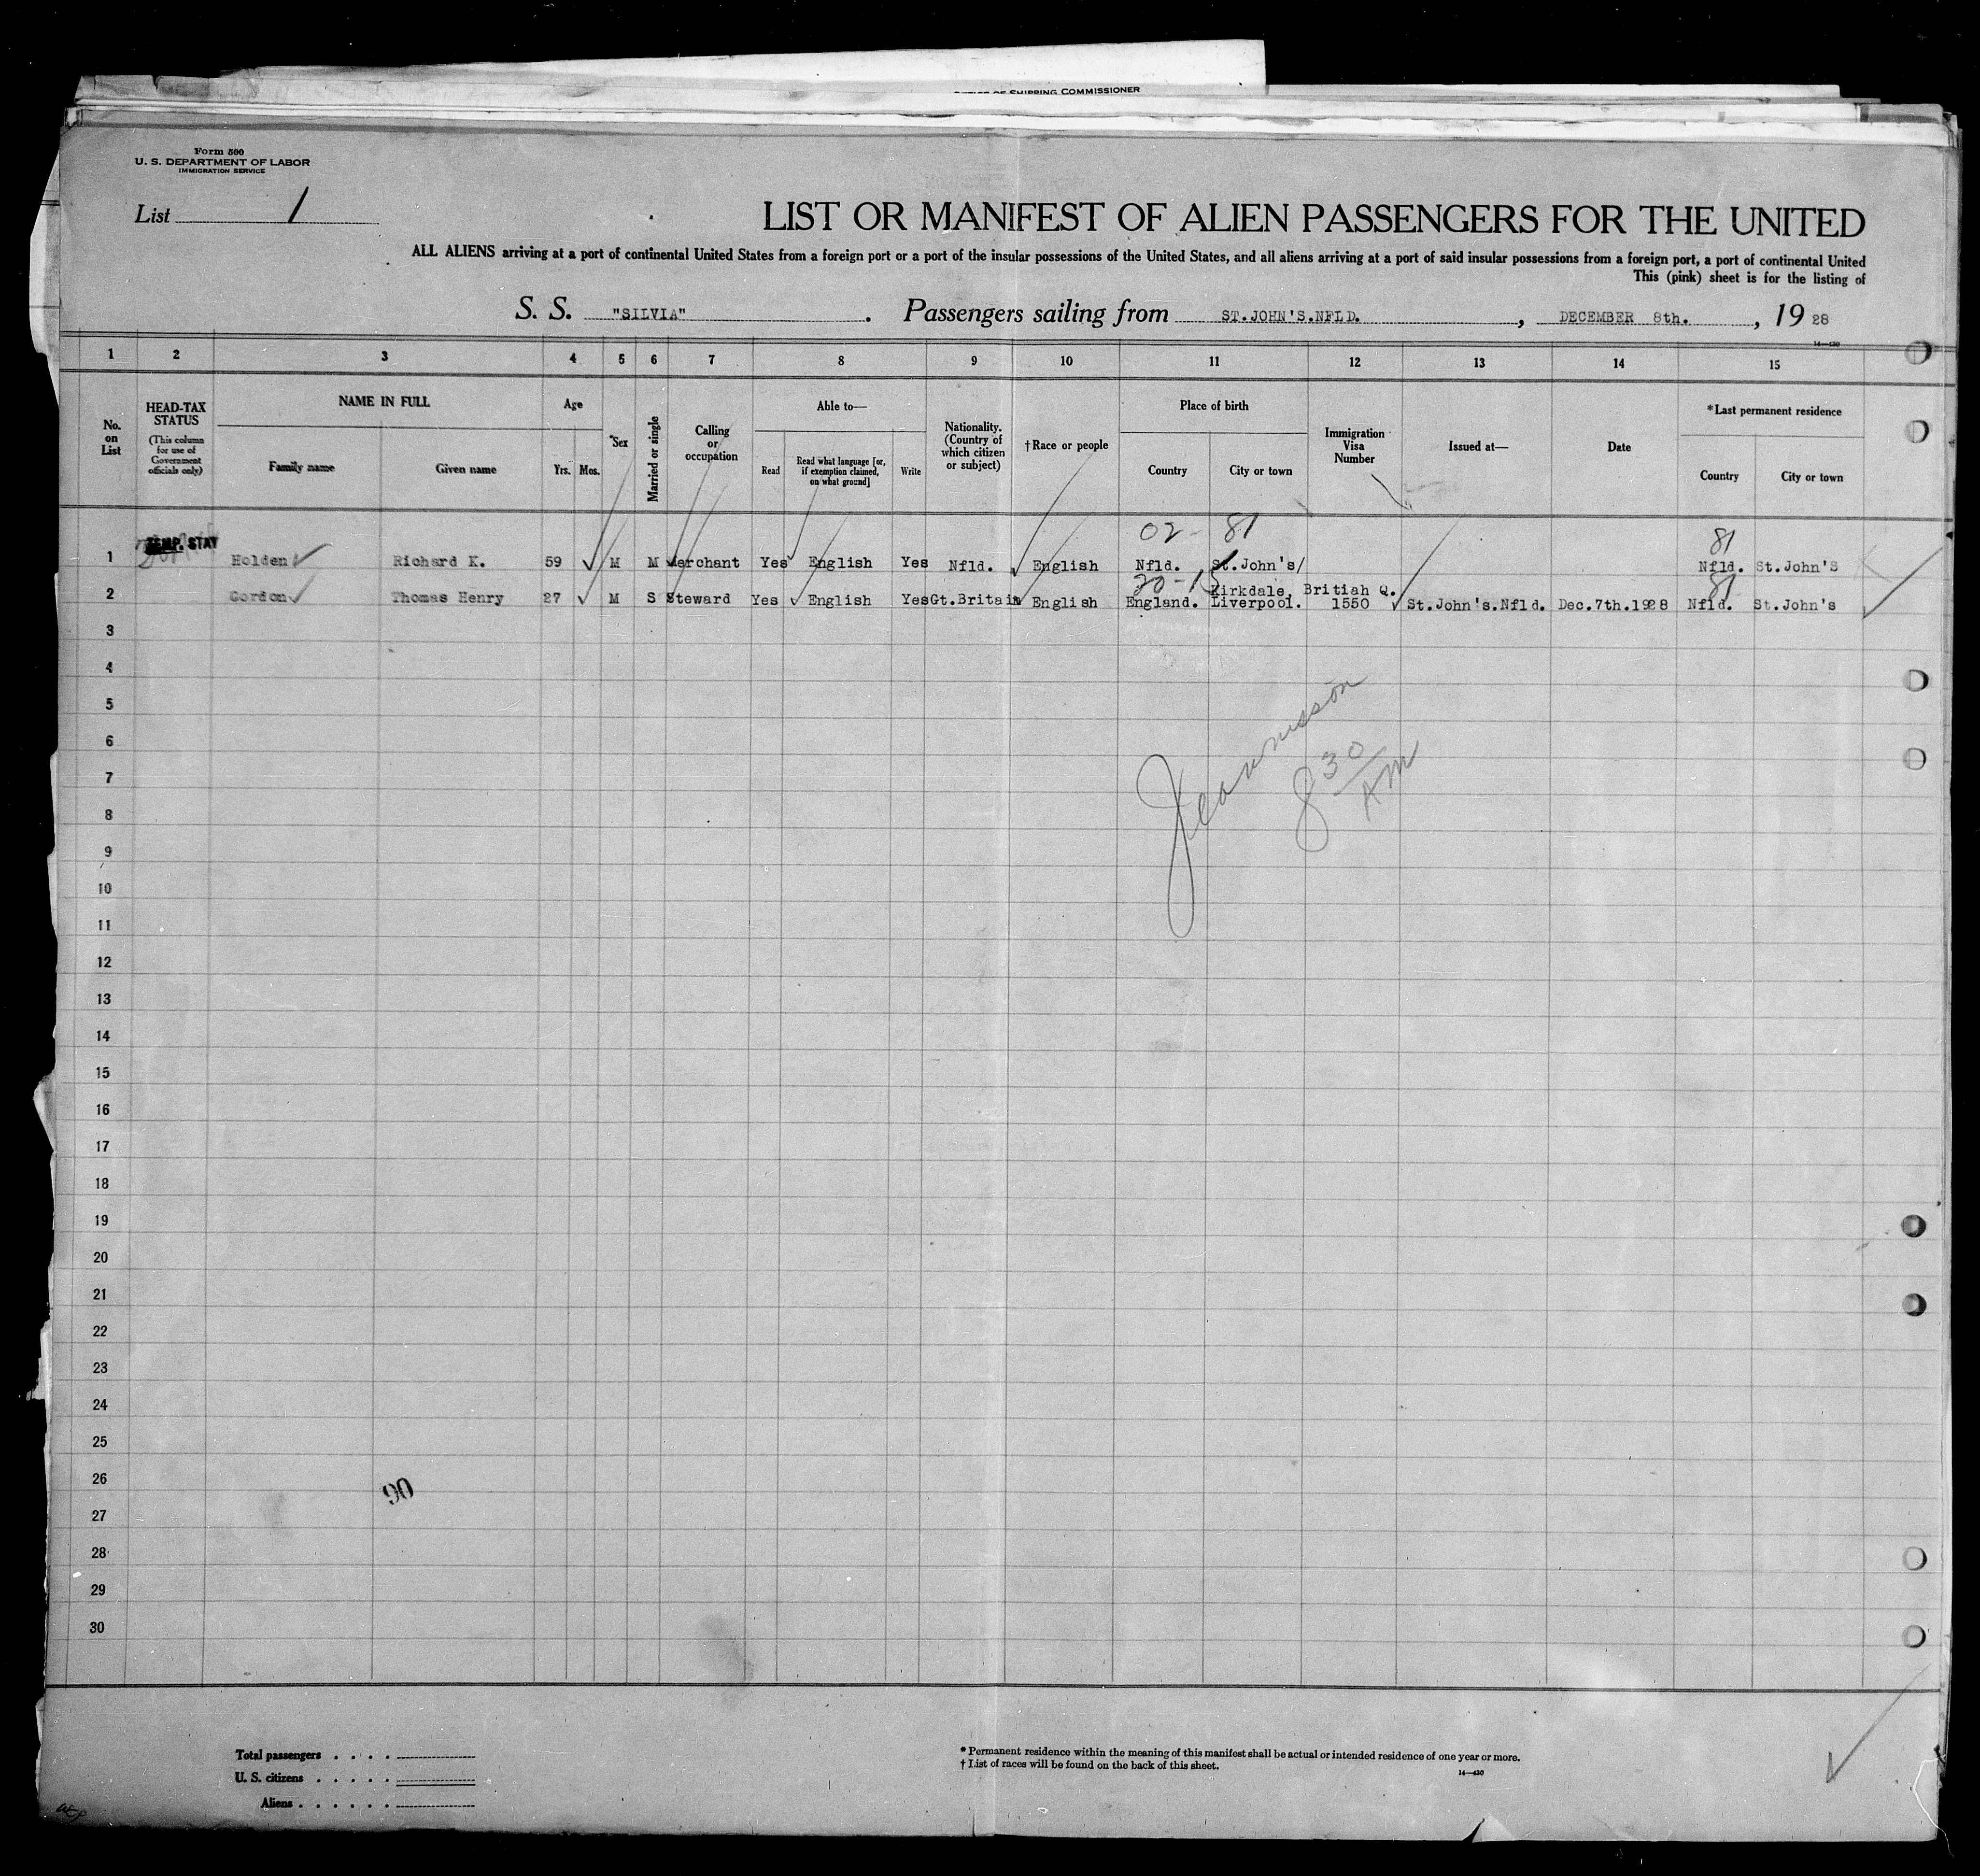 OFFICE OF SHIPPING COMMISSIONER
Form 500
U. S. DEPARTMENT OF LABOR
IMMIGRATION SERVICE
List 1
LIST OR MANIFEST OF ALIEN PASSENGERS FOR THE UNITED
ALL ALIENS arriving at a port of continental United States from a foreign port or a port of the insular possessions of the United States, and all aliens arriving at a port of said insular possessions from a foreign port, a port of continental United
This (pink) sheet is for the listing of
S. S. "SILVIA". Passengers sailing from ST.JOHN'S.NFLD., DECEMBER 8th., 1928
14—430
1 2 3 4 5 6 7 8 9 10 11 12 13 14 15
No. on List
HEAD-TAX STATUS (This column for use of Government officials only)
NAME IN FULL
Family name
Given name
Age
Yrs. Mos.
Sex
Married or single
Calling or occupation
Able to—
Read
Read what language [or, if exemption claimed, on what ground]
Write
Nationality. (Country of which citizen or subject)
†Race or people
Place of birth
Country
City or town
Immigration Visa Number
Issued at—
Date
*Last permanent residence
Country
City or town
02- 81 81
TEMP. STAY
1 Holden Richard K. 59 M M Merchant Yes English Yes Nfld. English Nfld. St.John's/ Nfld. St.John's
20-15 81
2 Gordon Thomas Henry 27 M S Steward Yes English Yes Gt.Britain English England. Kirkdale, Liverpool. British Q. 1550 St.John's.Nfld. Dec.7th.1928 Nfld. St.John's
3
4
5
6
7
8
9
10
11
12
13
14
15
16
17
18
19
20
21
22
23
24
25
26
27
28
29
30
8 30 AM
90
Total passengers . . . .
U. S. citizens . . . . .
Aliens . . . . . .
* Permanent residence within the meaning of this manifest shall be actual or intended residence of one year or more.
† List of races will be found on the back of this sheet.
14—430